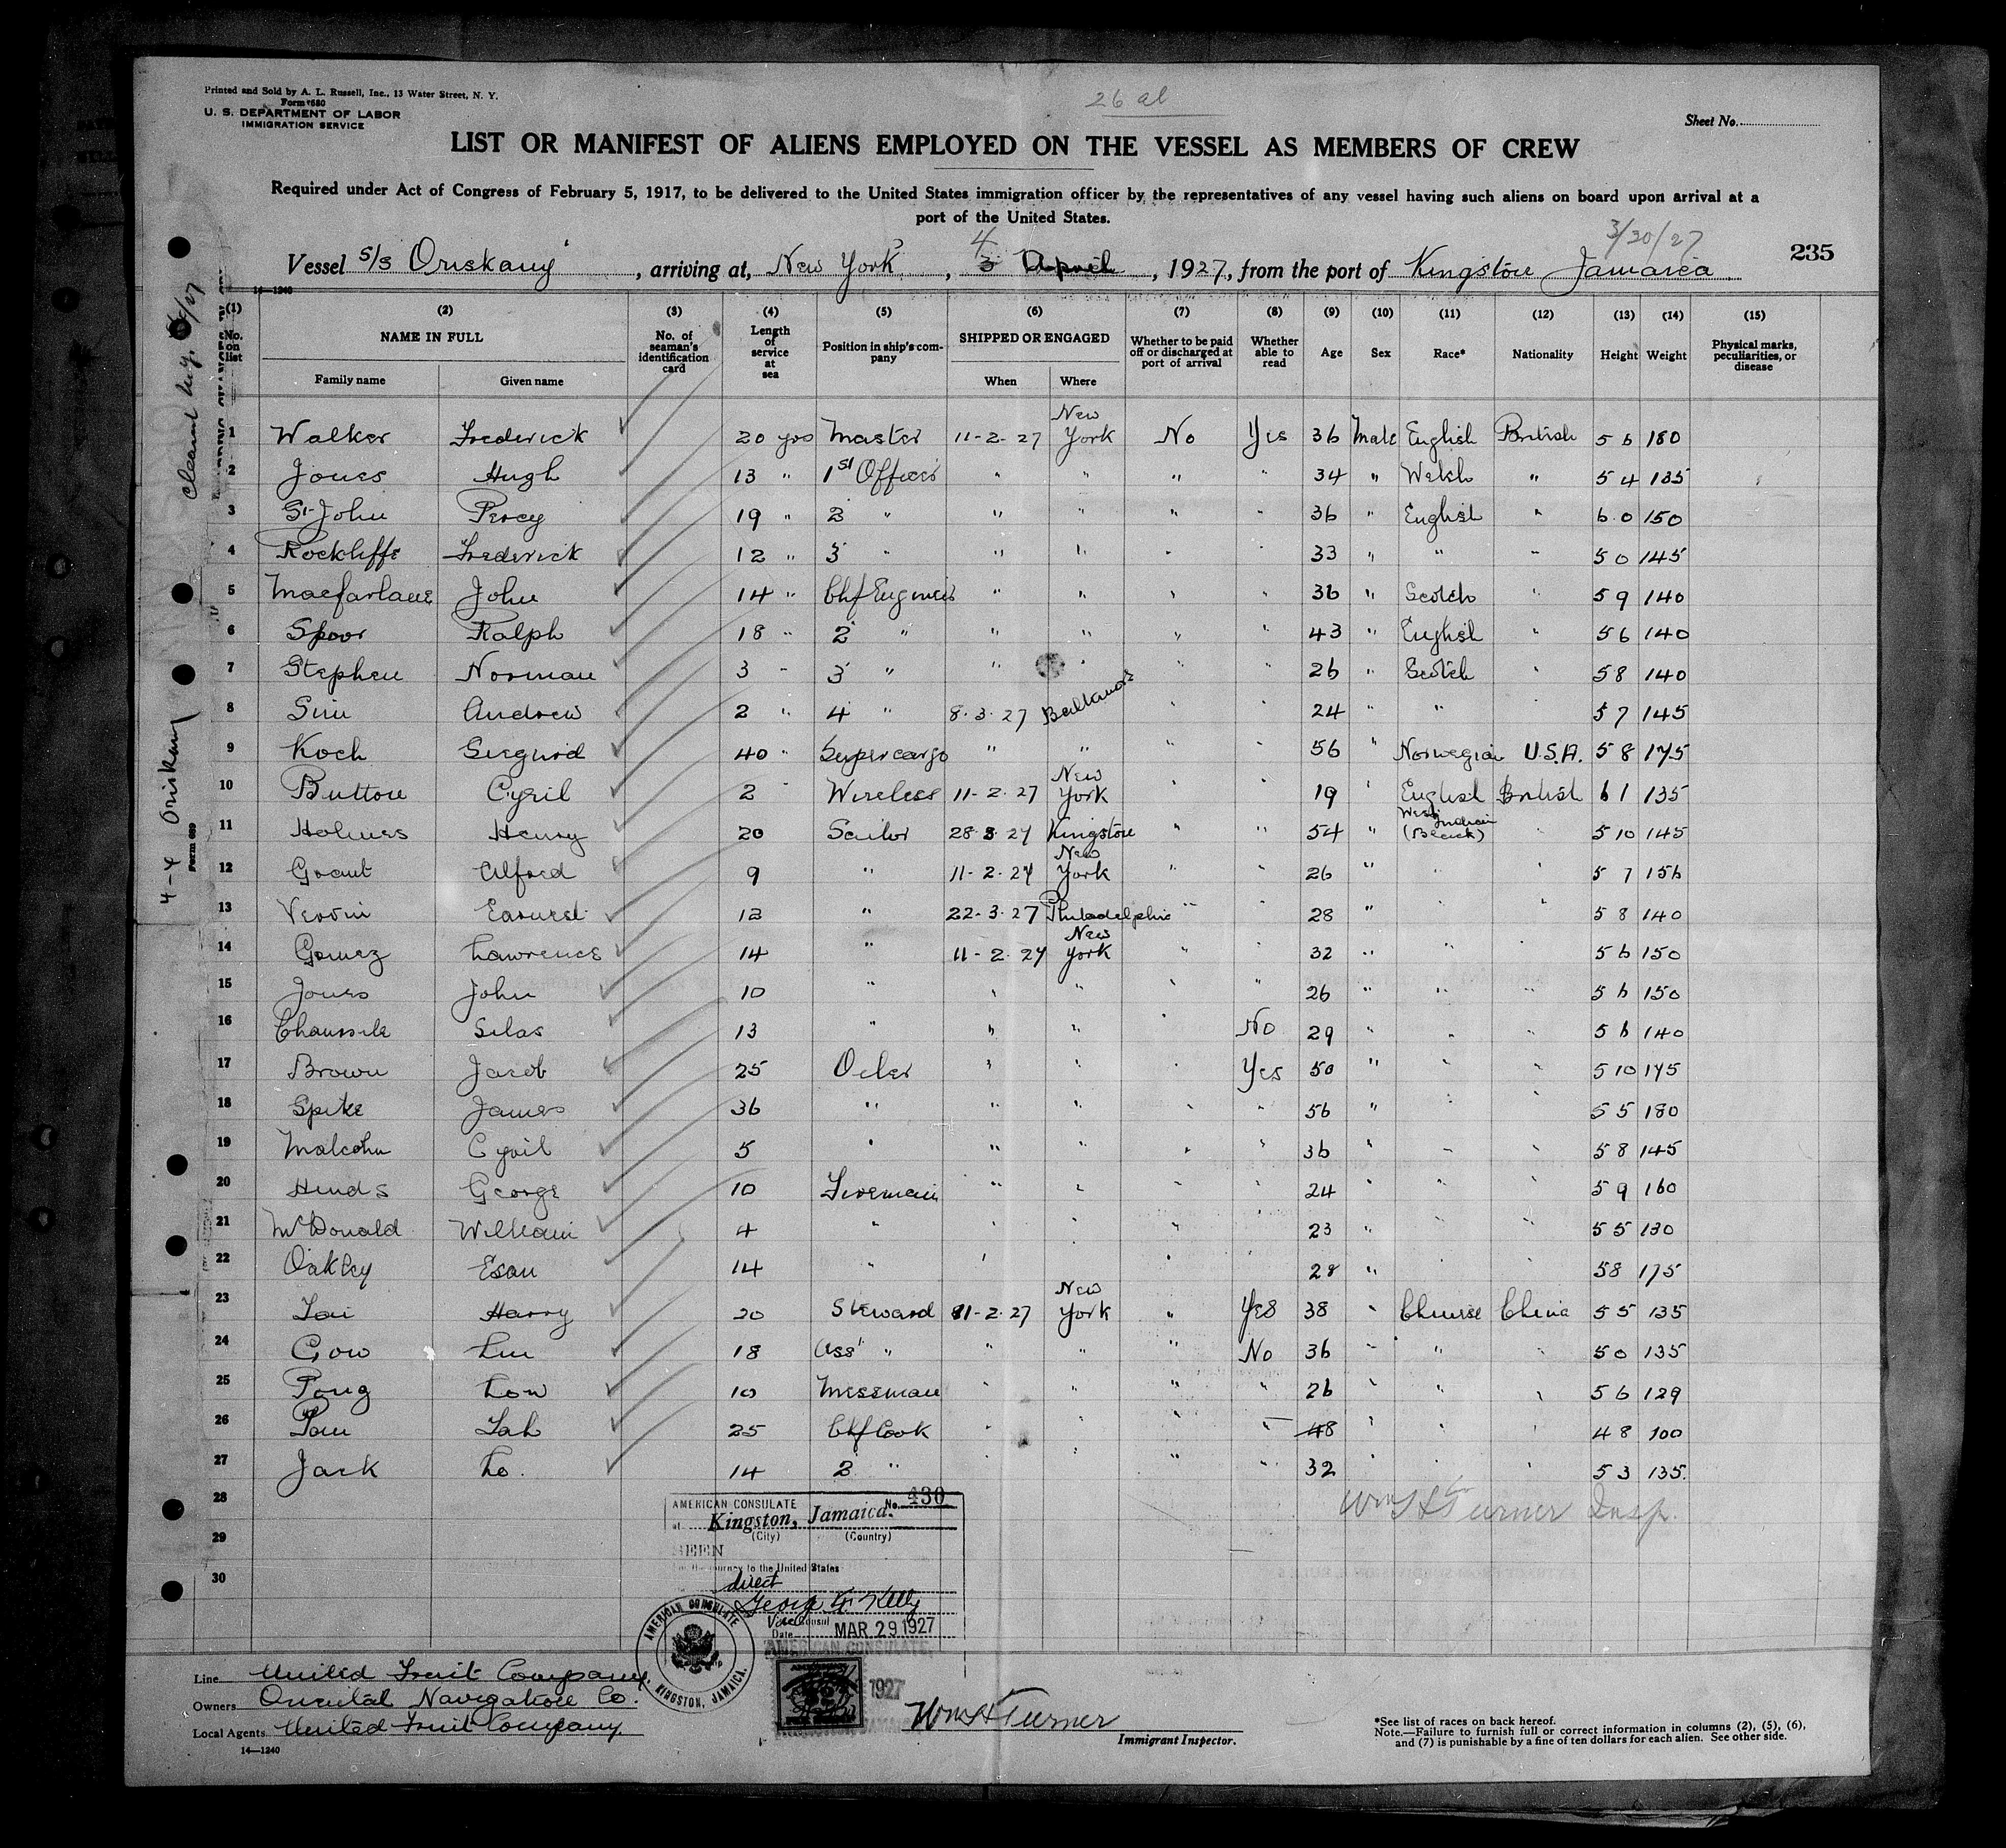 Printed and Sold by A. L. Russell, Inc., 13 Water Street, N. Y.
Form 680
U. S. DEPARTMENT OF LABOR
IMMIGRATION SERVICE
26 al
Sheet No.
LIST OR MANIFEST OF ALIENS EMPLOYED ON THE VESSEL AS MEMBERS OF CREW
Required under Act of Congress of February 5, 1917, to be delivered to the United States immigration officer by the representatives of any vessel having such aliens on board upon arrival at a
port of the United States.
3/20/27
4
Vessel S/S Oriskany, arriving at, New York, 3 April, 1927, from the port of Kingston Jamaica
235
14—1240
(1) (2) (3) (4) (5) (6) (7) (8) (9) (10) (11) (12) (13) (14) (15)
No. on list NAME IN FULL No. of seaman's identification card Length of service at sea Position in ship's company SHIPPED OR ENGAGED Whether to be paid off or discharged at port of arrival Whether able to read Age Sex Race* Nationality Height Weight Physical marks, peculiarities, or disease
Family name Given name When Where
1 Walker Frederick 20 yrs Master 11-2-27 New York No Yes 36 Male English British 5 6 180
2 Jones Hugh 13 " 1st Officer " " " " 34 " Welch " 5 4 135
3 St John Percy 19 " 2 " " " " " 36 " English " 6 0 150
4 Rockliffe Frederick 12 " 3 " " " " " 33 " " " 5 0 145
5 Macfarlane John 14 " Chf Engineer " " " " 36 " Scotch " 5 9 140
6 Spoor Ralph 18 " 2 " " " " " 43 " English " 5 6 140
7 Stephen Norman 3 " 3 " " " " " 26 " Scotch " 5 8 140
8 Sim Andrew 2 " 4 " 8-3-27 Baltimore " " 24 " " " 5 7 145
9 Koch Sigurd 40 " Supercargo " " " " 56 " Norwegian U.S.A. 5 8 175
10 Button Cyril 2 " Wireless 11-2-27 New York " " 19 " English British 6 1 135
11 Holmes Henry 20 Sailor 28-3-27 Kingston " " 54 " West Indian (Black) " 5 10 145
12 Grant Alfred 9 " 11-2-27 New York " " 26 " " " 5 7 156
13 Earnest 12 " 22-3-27 Philadelphia " " 28 " " " 5 8 140
14 Gomez Lawrence 14 " 11-2-27 New York " " 32 " " " 5 6 150
15 Jones John 10 " " " " " 26 " " " 5 6 150
16 Silas 13 " " " " No 29 " " " 5 6 140
17 Brown Jacob 25 Oiler " " " Yes 50 " " " 5 10 175
18 Spike James 36 " " " " " 56 " " " 5 5 180
19 Malcolm Cyril 5 " " " " " 36 " " " 5 8 145
20 Hinds George 10 Fireman " " " " 24 " " " 5 9 160
21 McDonald William 4 " " " " " 23 " " " 5 5 130
22 Oakley Esau 14 " " " " 28 " " " 5 8 175
23 Harry 20 Steward 11-2-27 New York " Yes 38 " Chinese China 5 5 135
24 Gow 18 Asst " " " " No 36 " " " 5 0 135
25 Pong Low 10 Messman " " " " 26 " " " 5 6 129
26 25 Chf Cook " " " " 48 " " " 4 8 100
27 Jack Lo. 14 2 " " " " " 32 " " " 5 3 135
28
Wm H Turner Insp.
29
30
AMERICAN CONSULATE No. 430
at Kingston, Jamaica.
(City) (Country)
SEEN
For the journey to the United States
direct
George F. Kelly
Vice Consul
Date MAR 29 1927
AMERICAN CONSULATE
AMERICAN CONSULATE
KINGSTON, JAMAICA.
1927
Line United Fruit Company.
Owners Oriental Navigation Co.
Local Agents United Fruit Company.
14—1240
Wm H Turner
Immigrant Inspector.
*See list of races on back hereof.
Note.—Failure to furnish full or correct information in columns (2), (5), (6),
and (7) is punishable by a fine of ten dollars for each alien. See other side.
4-4 Oriskany
Form 689